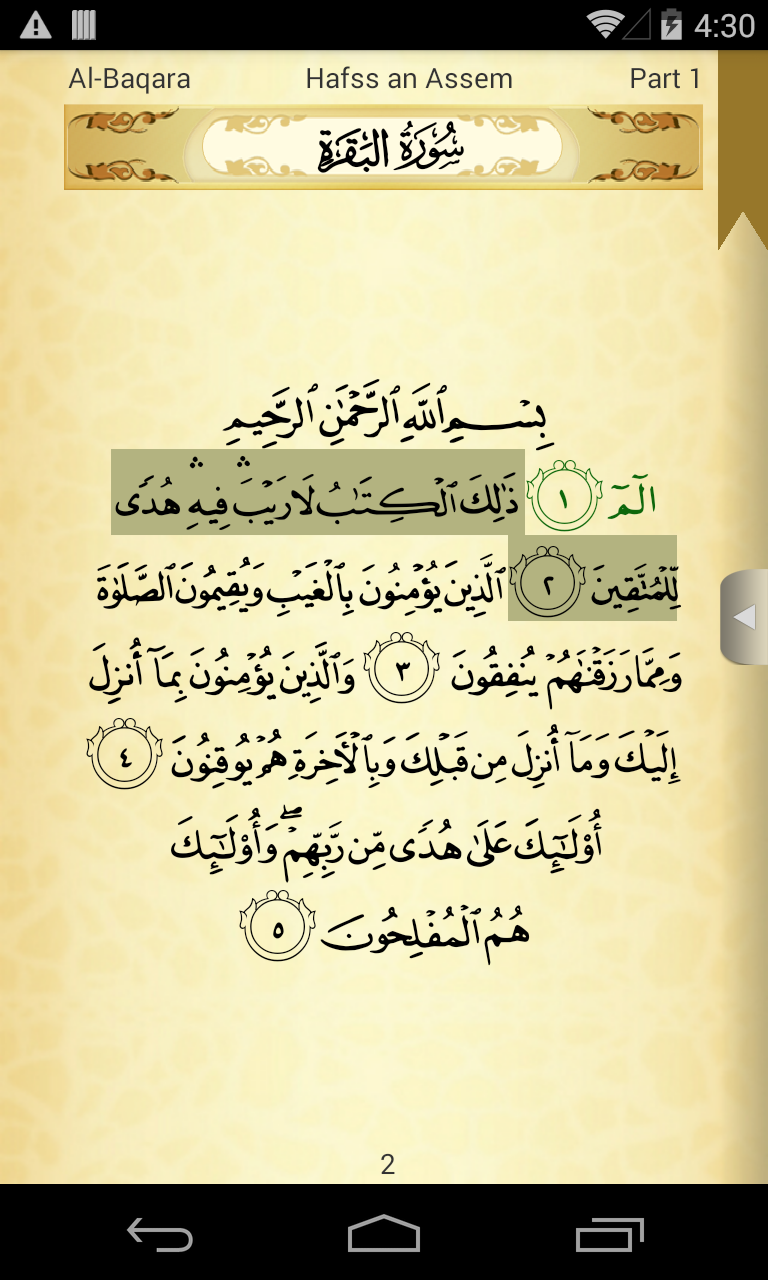 4:30
Al-Baqara Hafss an Assem Part 1
سُورَةُ البَقَرَةِ
بِسْمِ ٱللَّهِ ٱلرَّحْمَٰنِ ٱلرَّحِيمِ
الٓمٓ ١ ذَٰلِكَ ٱلْكِتَٰبُ لَا رَيْبَ ۛ فِيهِ ۛ هُدًى
لِّلْمُتَّقِينَ ٢ ٱلَّذِينَ يُؤْمِنُونَ بِٱلْغَيْبِ وَيُقِيمُونَ ٱلصَّلَوٰةَ
وَمِمَّا رَزَقْنَٰهُمْ يُنفِقُونَ ٣ وَٱلَّذِينَ يُؤْمِنُونَ بِمَآ أُنزِلَ
إِلَيْكَ وَمَآ أُنزِلَ مِن قَبْلِكَ وَبِٱلْأَخِرَةِ هُمْ يُوقِنُونَ ٤
أُو۟لَٰٓئِكَ عَلَىٰ هُدًى مِّن رَّبِّهِمْ ۖ وَأُو۟لَٰٓئِكَ
هُمُ ٱلْمُفْلِحُونَ ٥
2